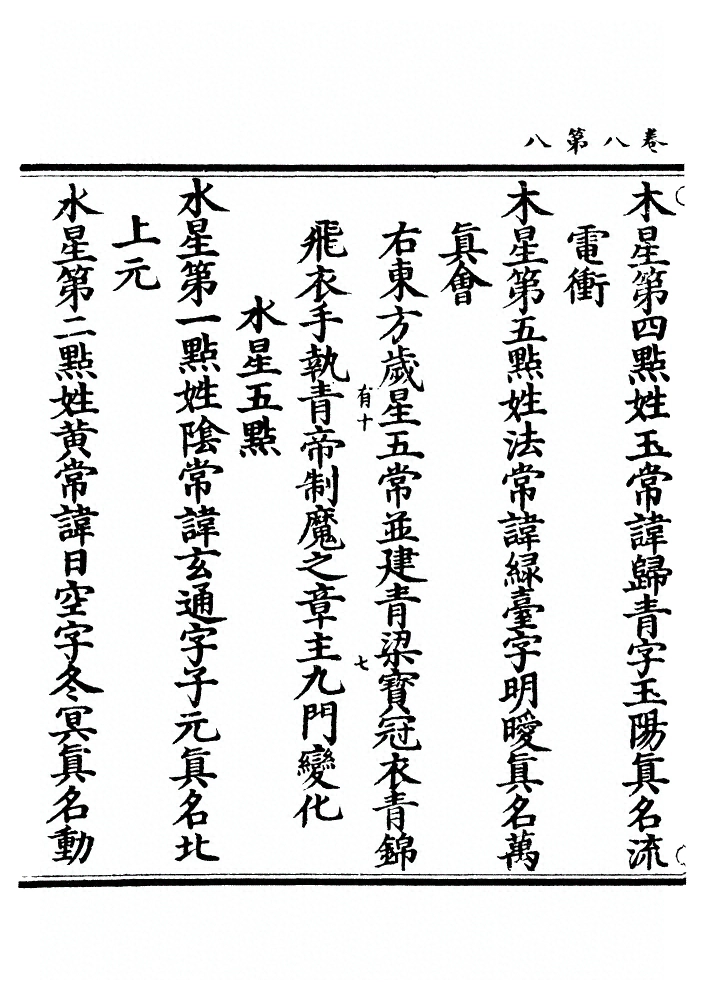 卷八第八
木星第四點姓玉常諱歸青字玉陽眞名流
電衝
木星第五點姓法常諱緑臺字明曖眞名萬
眞會
右東方歲星五常並建青梁寶冠衣青錦
有十
七
飛衣手執青帝制魔之章主九門變化
水星五點
水星第一點姓陰常諱玄通字子元眞名北
上元
水星第二點姓黄常諱日空字冬冥眞名動